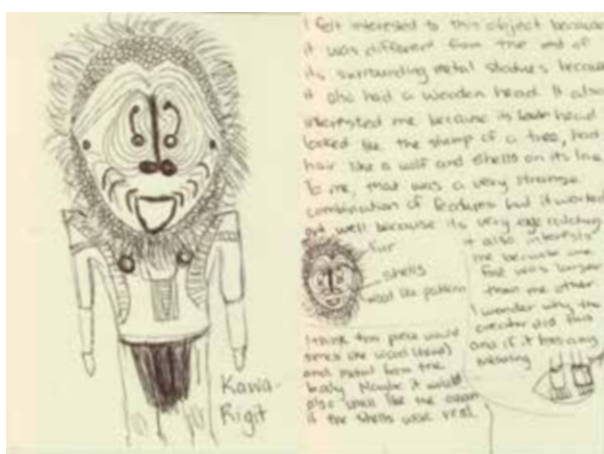 Kawa-
Rigit
I felt interested to this object because
it was different from the rest of
its surrounding metal statues because
it also had a wooden head. It also
interested me because its head
looked like the stump of a tree, had
hair like a wolf and shells on its face.
To me, that was a very strange
combination of features but it worked
out well because its very eye catching
fur
shells
wood like pattern
it also interests
me because one
foot was larger
than the other
I wonder why the
creator did that
and if it has any
meaning
I think this piece would
smell like wood (head)
and metal from the
body. Maybe it would
also smell like the ocean
if the shells were real.